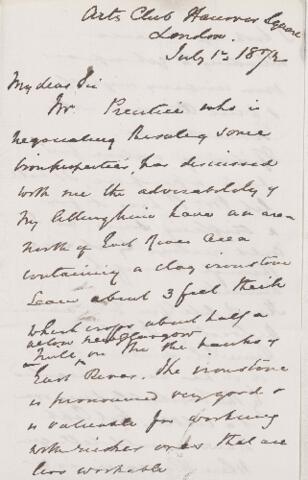 Arts Club Hanover Square
London.
July 1st 1872
My dear Sir
Mr. Prentice who is
negociating the sale of some
iron properties, has discussed
with me the advisability of
my letting him have an area
north of East River area
containing a clay ironstone
seam about 3 feet thick
which crops about half a
mile below New Glasgow
on the the banks of
East River. The ironstone
is pronounced very good &
is valuable for working
with richer ores that are
less workable